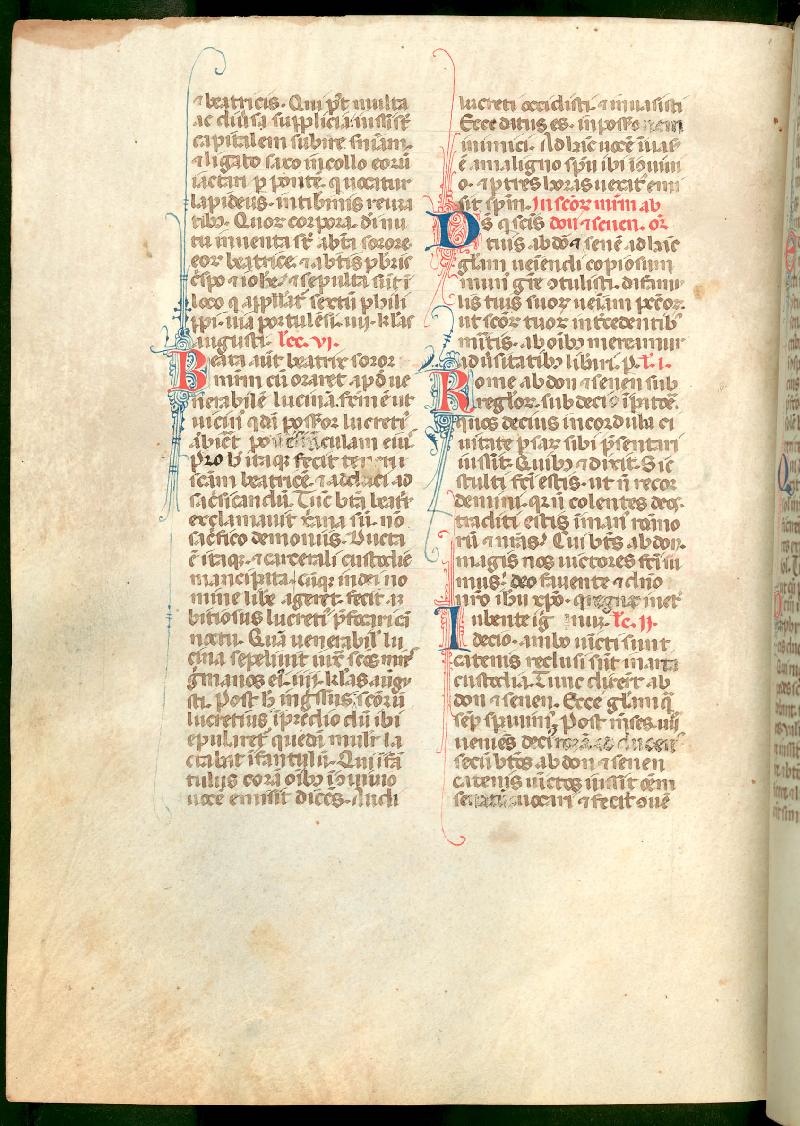 ⁊ beatricis. Qui pꝰt multa
ac diũsa supplicia iussi st̃
capitalem subire sñiam.
⁊ ligato saxo in collo eorũ
iactari ꝑ pontẽ. q uocatur
lapideus. in tibinis reuma
tibꝫ. Quor corpora. di nu
tu inuenta st̃. abta sorore
eor beatrice. ⁊ abtis p̃bris
c̃spo ⁊ ioħe. ⁊ sepulta sũt ĩ
loco q appllat̃ sextũ phili
ppi. uia portuẽsi. iiij. kl'as
augusti. lec. vi.
Beata aũt beatrix soror
mirm cũ oraret apđ ue
nerabilẽ lucinã. Factũ ẽ ut
uicin qđã possr̃or lucreti
abiẽt possẽiũculam eiꝰ
pro ħ itaqꝫ fecit teneri
scãm beatricẽ. ⁊ adduci ad
sac̃ficandũ. Tũc bt̃a beatr̃
exclamauit xp̃iana sũ. nõ
sac̃fico demoniis. Ducta
ẽ itaqꝫ. ⁊ carcerali custodie
mancipata. cũqꝫ in dei no
mine libe ageret. fecit a
bitiosus lucreti p̃focari eã
noctu. Quã uenerabil' lu
cina sepeliuit iux̃ scõs mr̃s
g̃manos ei. iiij. kl'as augu
sti. Post ħ ing̃ssus. scõrũ
lucretius ĩ predio dũ ibi
epularet̃ quedã mulir̃ la
ctabat ĩfantulũ. Qui ĩfã
tulus corã oĩbꝫ ĩ ɔuiuio
uoce emissit dicẽs. Audi
lucreti occidisti. ⁊ inuasisti
Ecce datus es. in possr̃onem
inimici. Ad hãc uocẽ ĩuas̃
ẽ a maligno sp̃u ibi ĩ ɔuiui
o. ⁊ ꝑ tres horas uexat̃ emi
sit sp̃m. In scõr mr̃m ab
Ds̃ q scĩs don ⁊ senen. or̃
tuis abdõ ⁊ senẽ ad hãc
gl̃am ueiendi copiosum
mun gr̃e ɔtulisti. da famu
lis tuis suor ueniam pccor̃.
ut scõr tuor intcedentibꝰ
mitis. ab oĩbꝫ mereamur
adũsitatibꝫ libari. p. l. I.
Rome abdon ⁊ senen sub
reguli or̃. sub decio ĩpitoẽ.
quos decius in corduba ci
uitate ꝑsar sibi p̃sentari
iussit. Quibꝫ ⁊ dixit. Sic
stulti fcĩ estis. ut n̄ recor
demini. qr n̄ colentes deos.
traditi estis ĩ manꝰ romo
rũ ⁊ nr̃as? Cui bt̃s abdon.
magis nos uictores fcĩ su
mus? deo fauente ⁊ dño
nr̃o ihu xpõ. q regnat ĩ et
I ubente ig̃ nuu. lc. II.
decio. ambo uicti sunt
catenis reclusi sũt in arta
custodia. Tunc dixer̃t ab
don ⁊ senen. Ecce gl̃am q̃
sẽp spauim? Post m̃ses. uij
ueniẽs deci romã. ⁊ ducens
secũ bt̃os abdon ⁊ senen
catenis uictos iussit oẽm
senatũ uocari ⁊ fecit ɔue